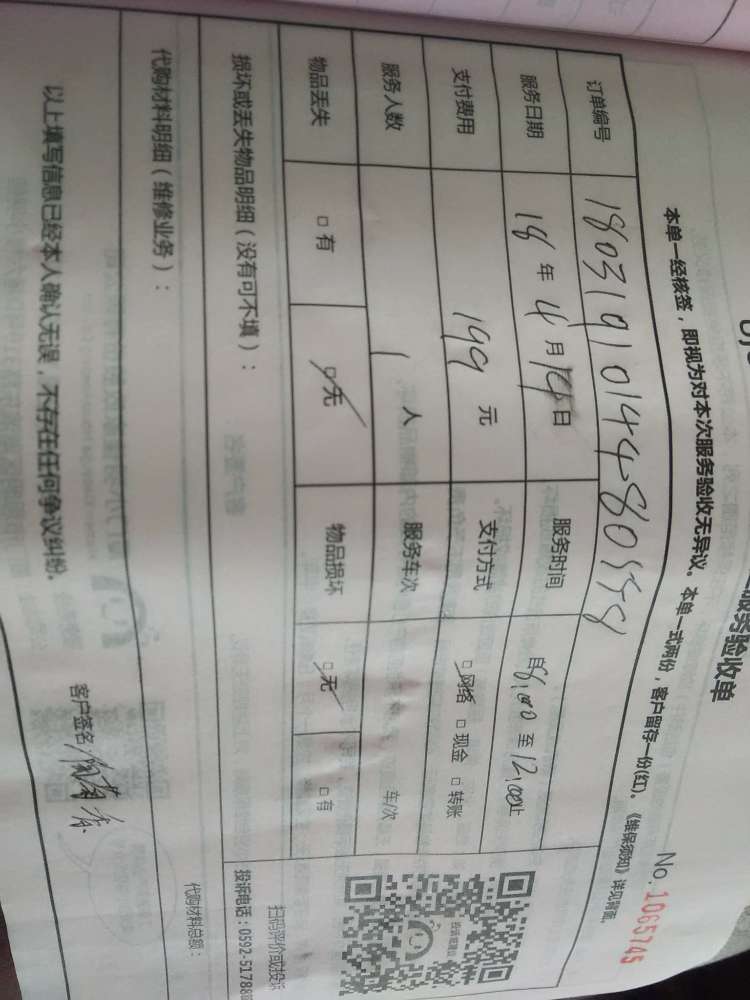 服务验收单
No. 1065745
本单一经核签，即视为对本次服务验收无异议。本单一式两份，客户留存一份(红)。《维保须知》详见背面。
订单编号
服务日期 18 年 4 月 日 服务时间 自8:00 至 12:00止
支付费用 199 元 支付方式 □网络 □现金 □转账
服务人数 1 人 服务车次 车/次
物品丢失 □有 □无 物品损坏 □无 □有
损坏或丢失物品明细（没有可不填）：
扫码评价或投诉
投诉电话：0592-51788
代购材料明细（维修业务）：
代购材料总额：
以上填写信息已经本人确认无误，不存在任何争议纠纷。
客户签名